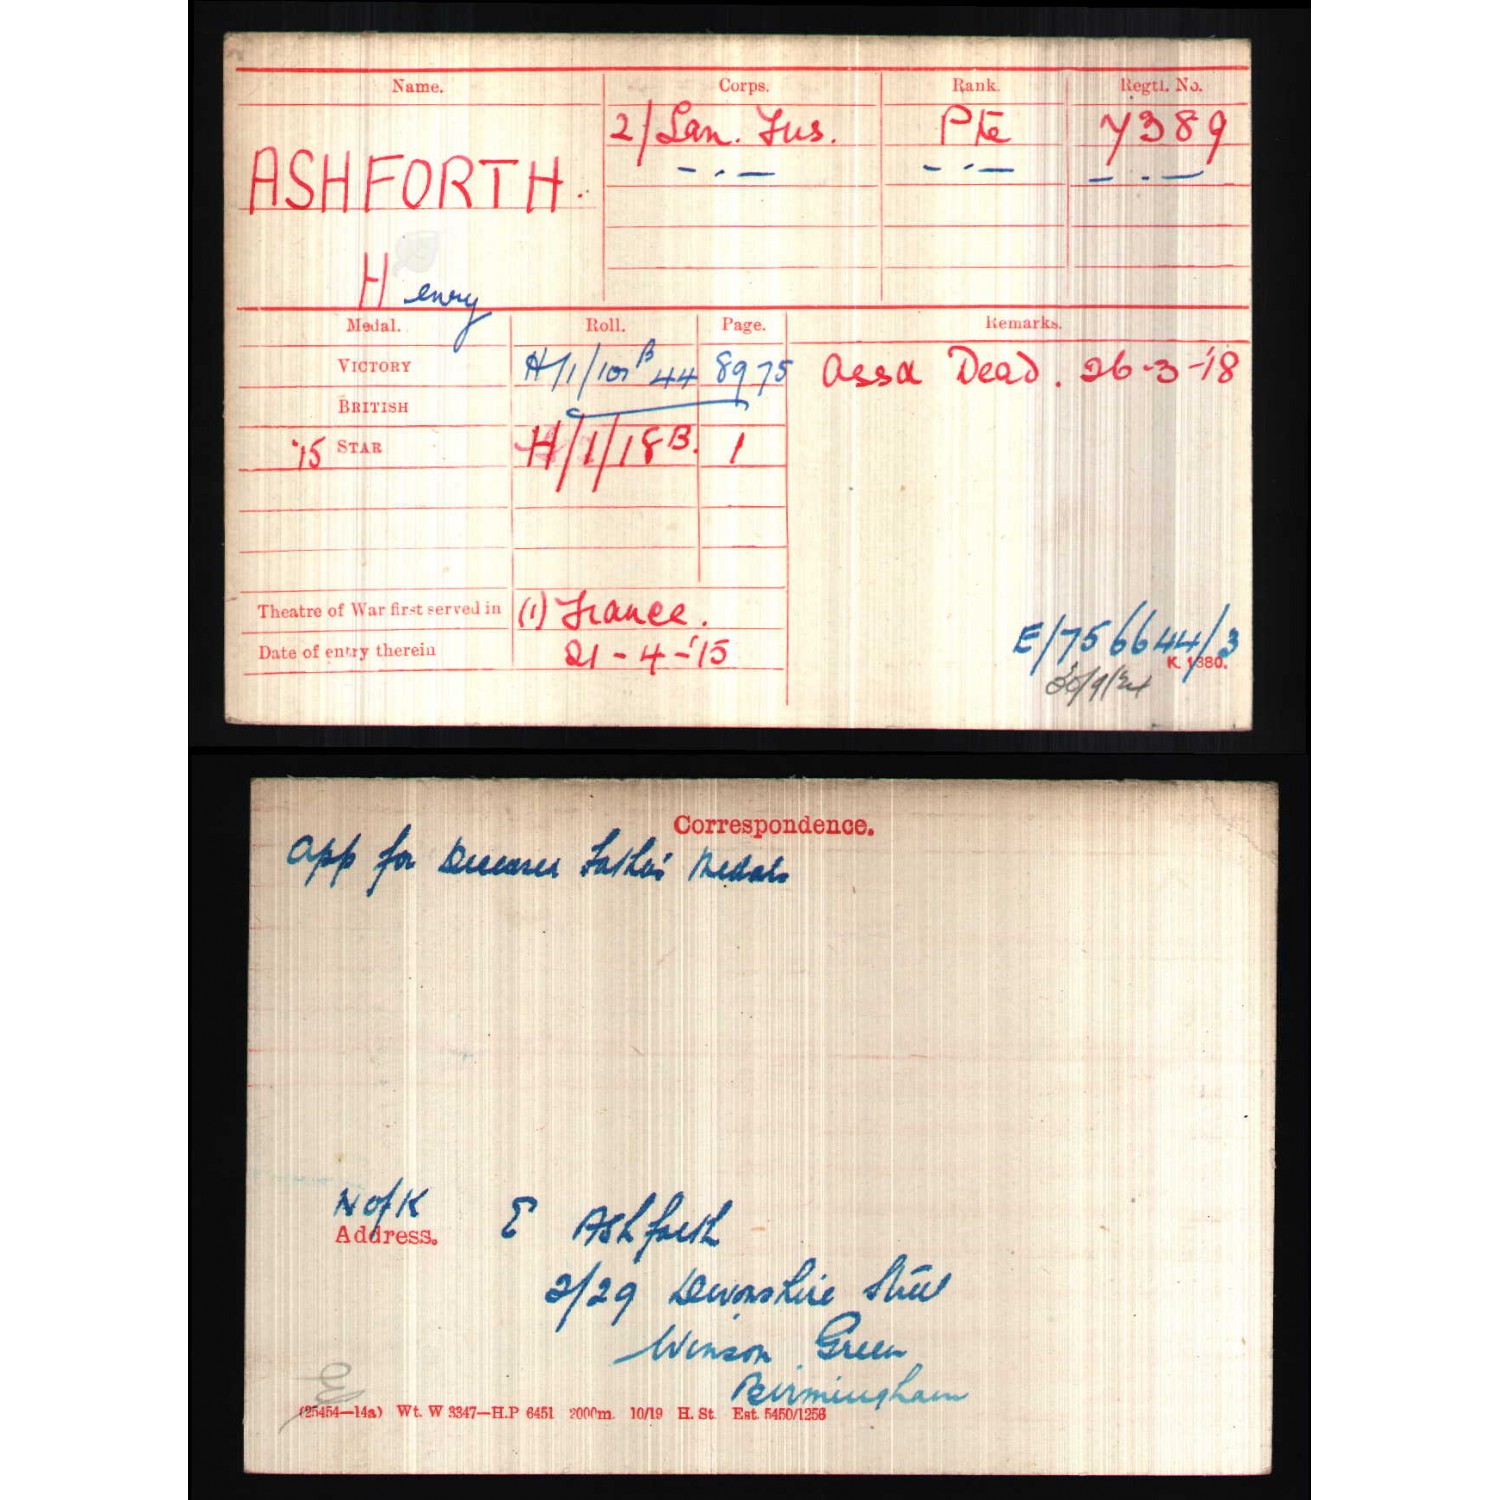 Name. Corps. Rank. Regtl. No.
ASHFORTH. 2/Lan. Fus. Pte 7389
— . — — . — — . —
Henry
Medal. Roll. Page. Remarks.
VICTORY H/1/101 B 44 8975 Assd Dead. 26-3-'18
BRITISH
'15 STAR H/1/18B. 1
Theatre of War first served in (1) France.
Date of entry therein 21-4-'15
E/756644/3
K. 1380.
Correspondence.
App for Deceased Father's Medals
N of K
Address. E Ashforth
2/29 Devonshire Street
Winson Green
Birmingham
E
(25454—14a) Wt. W 3347—H.P 6451 2000m. 10/19 H. St. Est. 5450/1256